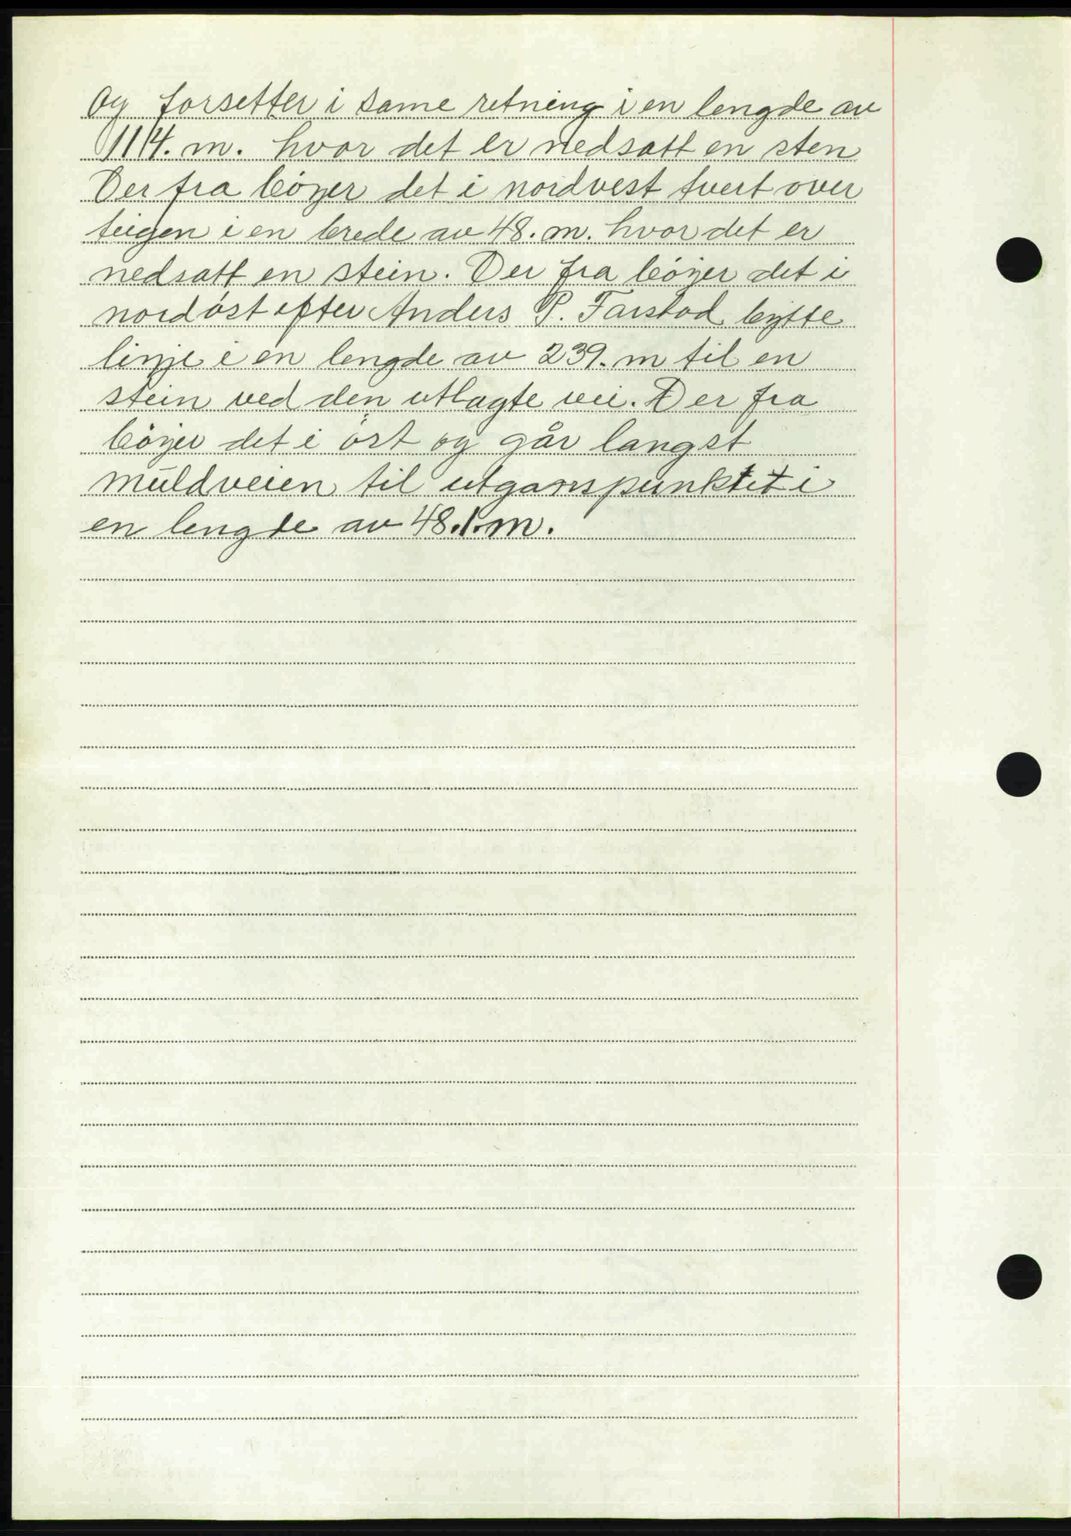 og forsetter i same retning i en lengde av
114. m. hvor det er nedsatt en sten
Der fra böyer det i nordvest tvert over
teigen i en brede av 48. m. hvor det er
nedsatt en stein. Der fra böyer det i
nordöst efter Anders P. Farstad bytte
linje i en lengde av 239. m til en
stein ved den utlagte vei. Der fra
böyer det i öst og går langst
muldveien til utganspunktet i
en lengde av 48.1.m.